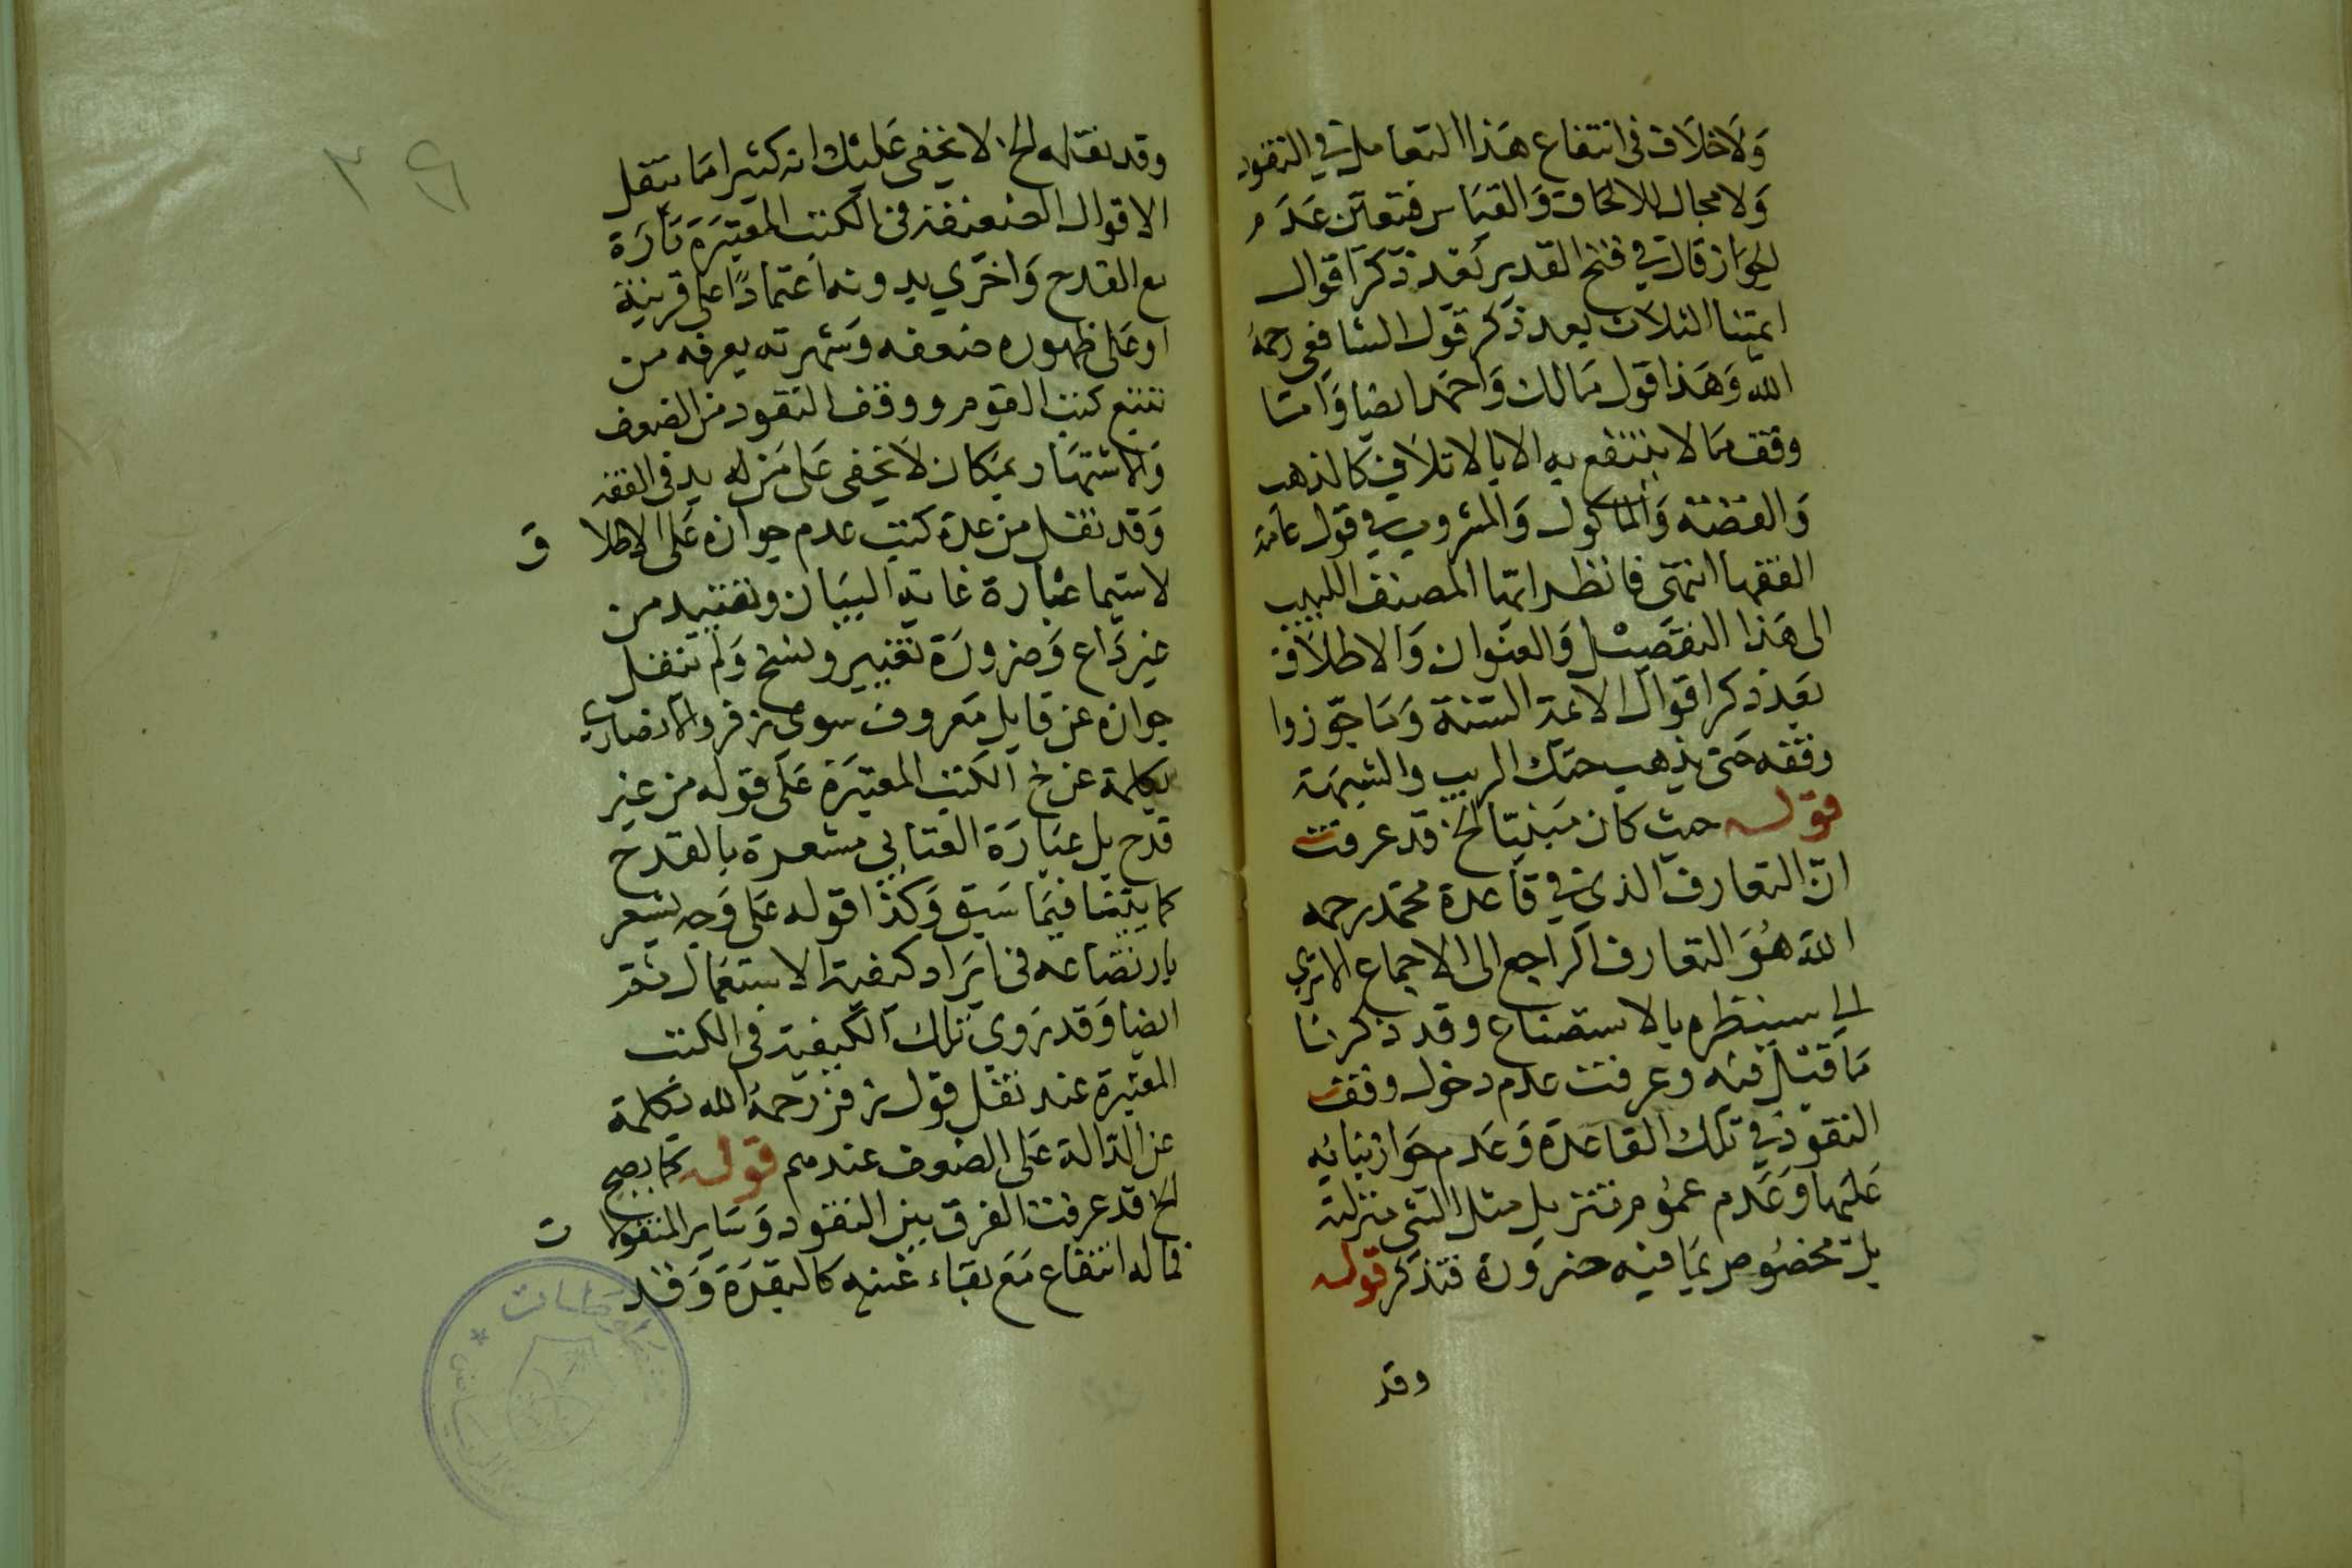 ولا خلاف في انتفاع هذا التعامل في النقود
ولا مجال للالحاق والقياس فتعين عدم
الجواز قال في فتح القدير بعد ذكر اقوال
ايمتنا الثلاث بعد ذكر قول الشافعي رحمه
الله وهذا قول مالك واحمد ايضا واما
وقف ما لا ينتفع به الا بالاتلاف كالذهب
والفضة والماكول والمشروب في قول عامة
الفقها انتهى فانظر ايها المصنف اللبيب
الى هذا التفصيل والعنوان والاطلاق
بعد ذكر اقوال الائمة الستة وما جوزوا
وقفه حتى يذهب عنك الريب والشبهة
قوله حيث كان مبنيا الخ قد عرفت
ان التعارف الذي في قاعدة محمد رحمه
الله هو التعارف الراجع الى الاجماع الا ترى
الى تنظيره بالاستصناع وقد ذكرنا
ما قيل فيه وعرفت عدم دخول وقف
النقود في تلك القاعدة وعدم جواز بنائه
عليها وعدم عموم تنزيل مثل الشي منزلته
بل مخصوص بما فيه ضرورة فتذكر قوله
وقد
٣٩
وقد نقله الخ لا يخفى عليك انه كثيرا ما تنقل
الاقوال الضعيفة في الكتب المعتبرة تارة
مع القدح واخرى بدونه اعتمادا على قرينة
او على ظهوره ضعفه وشهرته يعرفه من
تتبع كتب القوم ووقف النقود من الضعف
والاشتهار بمكان لا يخفى على من له يد في الفقه
وقد نقل من عدة كتب عدم جوازه على الاطلاق
لا سيما عبارة غاية البيان وتقييد من
غير داع وضرورة تغيير ونسخ ولم تنقل
جوازه عن قايل معروف سوى زفر والانصاري
بكلمة عن خ الكتب المعتبرة على قوله من غير
قدح بل عبارة العتابي مشعرة بالقدح
كما بينا فيما سبق وكذا قوله على وجه يشعر
بارتضاعه في ايراد كيفية الاستعمال نقد
ايضا وقد روي تلك الكيفية في الكتب
المعتبرة عند نقل قول زفر رحمه الله بكلمة
عن الدالة على الضعف عندهم قوله كما يصح
الخ قد عرفت الفرق بين النقود وساير المنقولات
فما له انتفاع مع بقاء عينه كالبقرة وقد